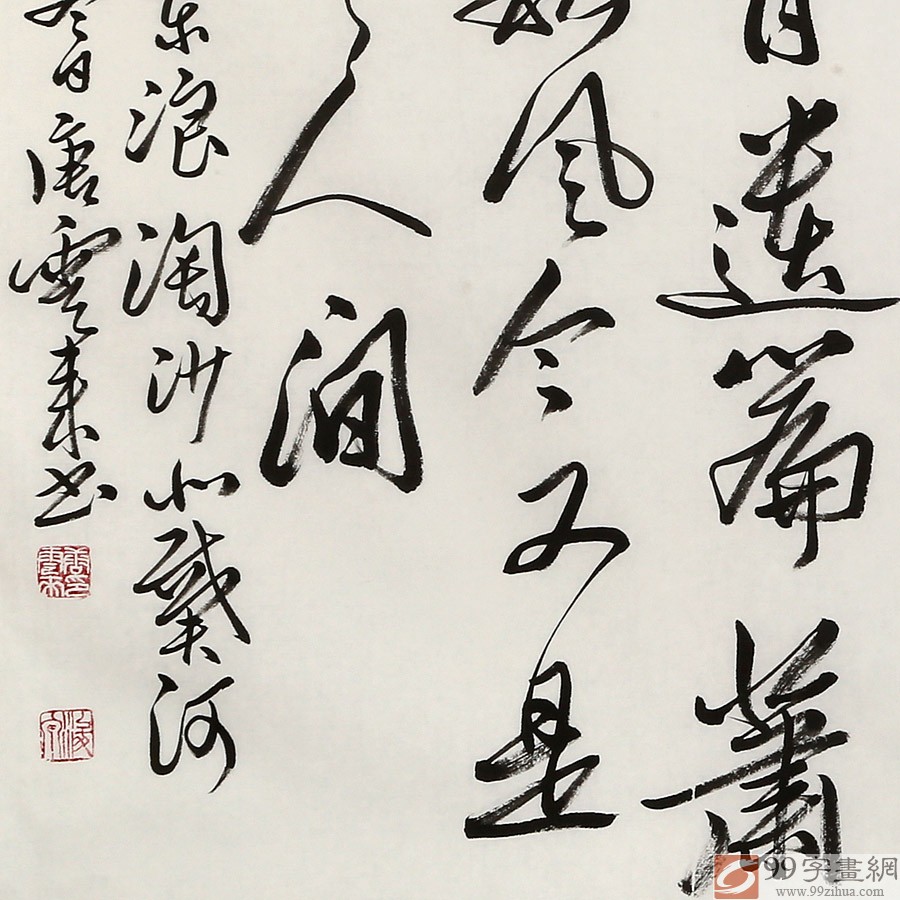 有遗篇蕭
秋风今又是
了人间
东浪淘沙北戴河
冬日唐雲来书
99字畫網
www.99zihua.com